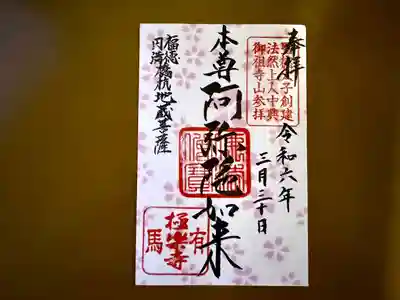 奉拝
子創建
法然上人中興
御祖寺山参拝
令和六年
三月三十日
本尊阿弥陀如来
福徳
円満
橋杭地蔵菩薩
極楽寺
有馬